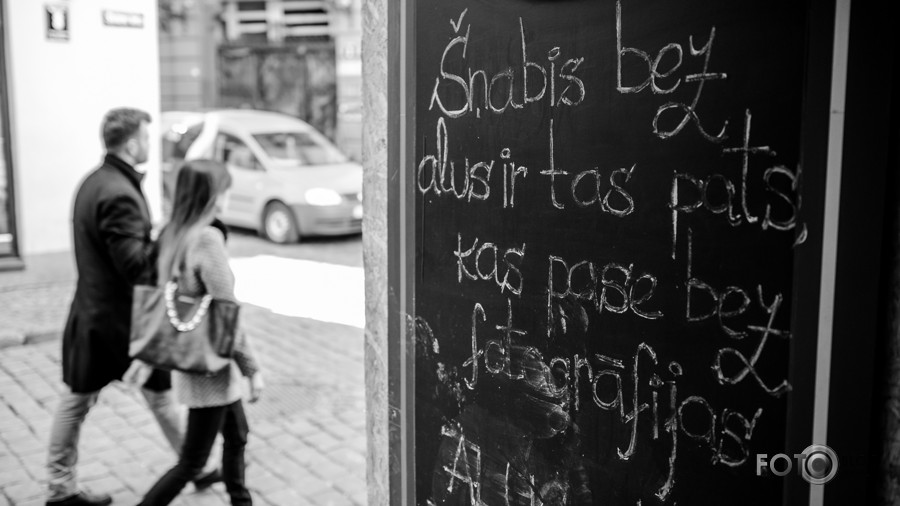 Šņabis bez
alus ir tas pats,
kas pase bez
fotogrāfijas
FOTO